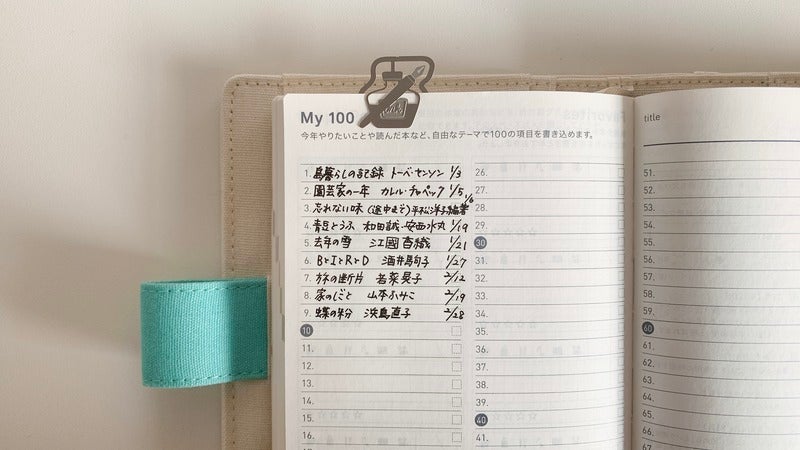 My 100
今年やりたいことや読んだ本など、自由なテーマで100の項目を書き込めます。
1. 島暮らしの記録 トーベ・ヤンソン 1/3
2. 園芸家の一年 カレル・チャペック 1/5
3. 忘れない味(途中まで)平松洋子編著 1/6
4. 青豆とうふ 和田誠・安西水丸 1/19
5. 去年の雪 江國香織 1/21
6. BとIとRとD 酒井駒子 1/27
7. 旅の断片 若菜晃子 2/12
8. 家のしごと 山本ふみこ 2/19
9. 蝶の粉 浜島直子 2/28
10
11.
12.
13.
14.
15.
16.
26.
27.
28.
29.
30
31.
32.
33.
34.
35.
36.
37.
38.
39.
40
41.
title
51.
52.
53.
54.
55.
56.
57.
58.
59.
60
61.
62.
63.
64.
65.
66.
67.